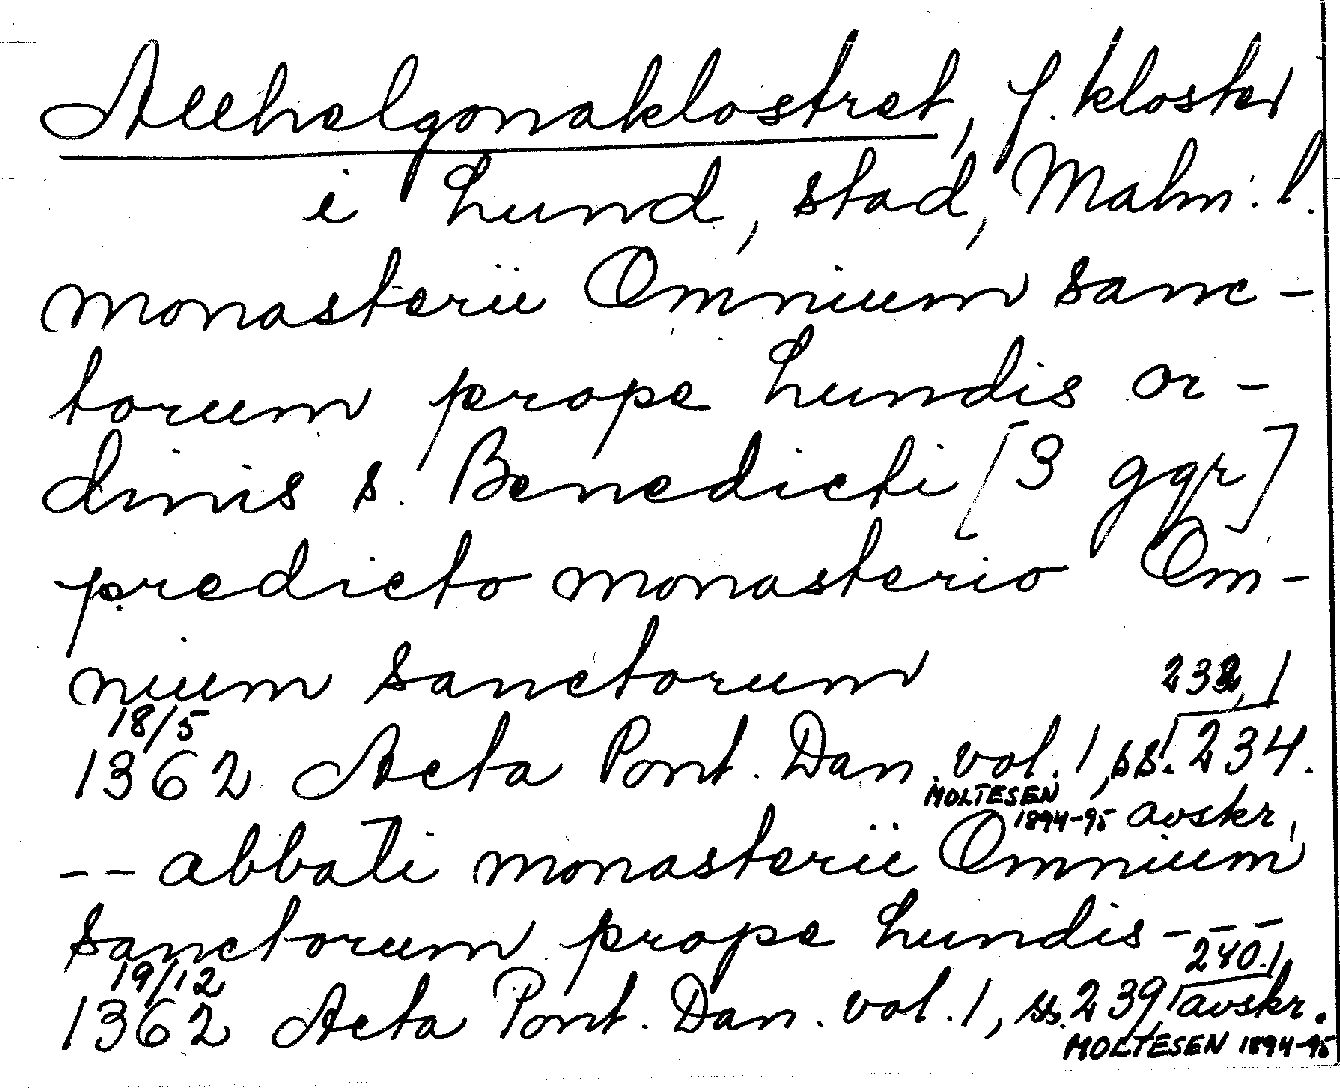 Allhelgonaklostret, f. kloster
i Lund, stad, Malm. l.
monasterii Omnium sanc-
torum prope Lundis or-
dinis s. Benedicti [3 ggr]
predicto monasterio Om-
nium sanctorum 232,
18/5
1362 Acta Pont. Dan. vol. 1, ss. 234.
MOLTESEN
1894-95 avskr.
-- abbati monasterii Omnium
sanctorum prope Lundis ---
19/12 240.
1362 Acta Pont. Dan. vol. 1, ss. 239, avskr.
MOLTESEN 1894-95